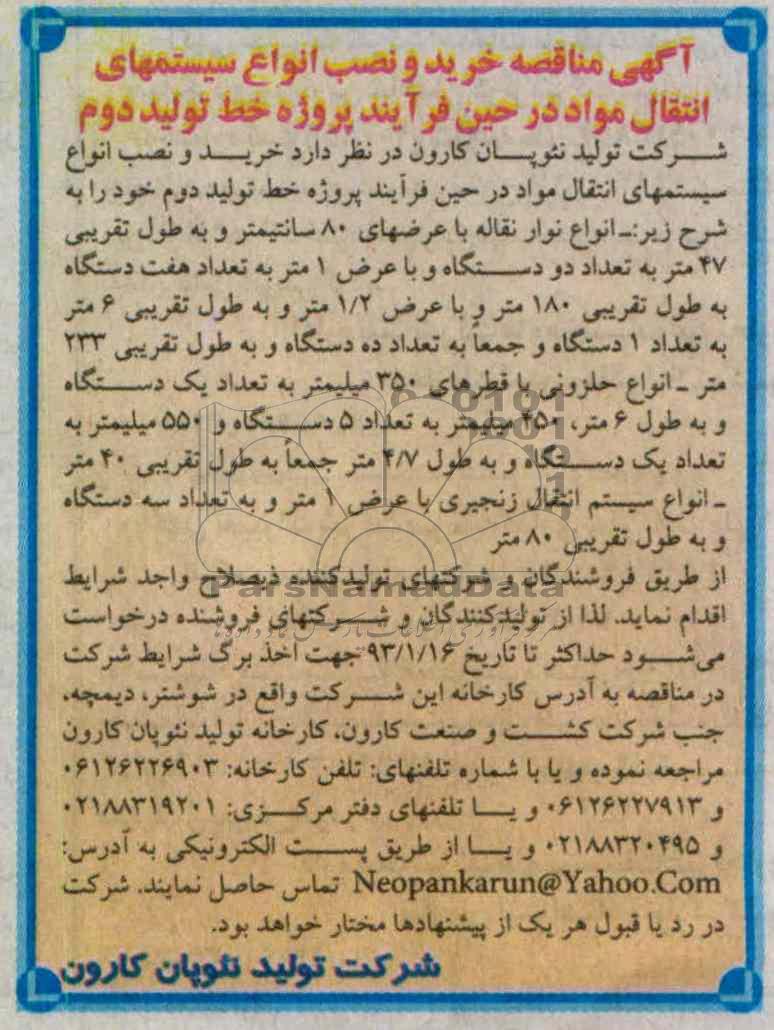 آگهی مناقصه خرید و نصب انواع سیستمهای
انتقال مواد در حین فرآیند پروژه خط تولید دوم
شرکت تولید نئوپان کارون در نظر دارد خرید و نصب انواع
سیستمهای انتقال مواد در حین فرآیند پروژه خط تولید دوم خود را به
شرح زیر:ـ انواع نوار نقاله با عرضهای ۸۰ سانتیمتر و به طول تقریبی
۴۷ متر به تعداد دو دستگاه و با عرض ۱ متر به تعداد هفت دستگاه
به طول تقریبی ۱۸۰ متر و با عرض ۱/۲ متر و به طول تقریبی ۶ متر
به تعداد ۱ دستگاه و جمعاً به تعداد ده دستگاه و به طول تقریبی ۲۳۳
متر ـ انواع حلزونی با قطرهای ۳۵۰ میلیمتر به تعداد یک دستگاه
و به طول ۶ متر، ۴۵۰ میلیمتر به تعداد ۵ دستگاه و ۵۵۰ میلیمتر به
تعداد یک دستگاه و به طول ۴/۷ متر جمعاً به طول تقریبی ۴۰ متر
ـ انواع سیستم انتقال زنجیری با عرض ۱ متر و به تعداد سه دستگاه
و به طول تقریبی ۸۰ متر
از طریق فروشندگان و شرکتهای تولیدکننده ذیصلاح واجد شرایط
ParsNamadData
اقدام نماید. لذا از تولیدکنندگان و شرکتهای فروشنده درخواست
می‌شود حداکثر تا تاریخ ۹۳/۱/۱۶ جهت اخذ برگ شرایط شرکت
در مناقصه به آدرس کارخانه این شرکت واقع در شوشتر، دیمچه،
جنب شرکت کشت و صنعت کارون، کارخانه تولید نئوپان کارون
مراجعه نموده و یا با شماره تلفنهای: تلفن کارخانه: ۰۶۱۲۶۲۲۶۹۰۳
و ۰۶۱۲۶۲۲۷۹۱۳ و یا تلفنهای دفتر مرکزی: ۰۲۱۸۸۳۱۹۲۰۱
و ۰۲۱۸۸۳۲۰۴۹۵ و یا از طریق پست الکترونیکی به آدرس:
Neopankarun@Yahoo.Com تماس حاصل نمایند. شرکت
در رد یا قبول هر یک از پیشنهادها مختار خواهد بود.
شرکت تولید نئوپان کارون